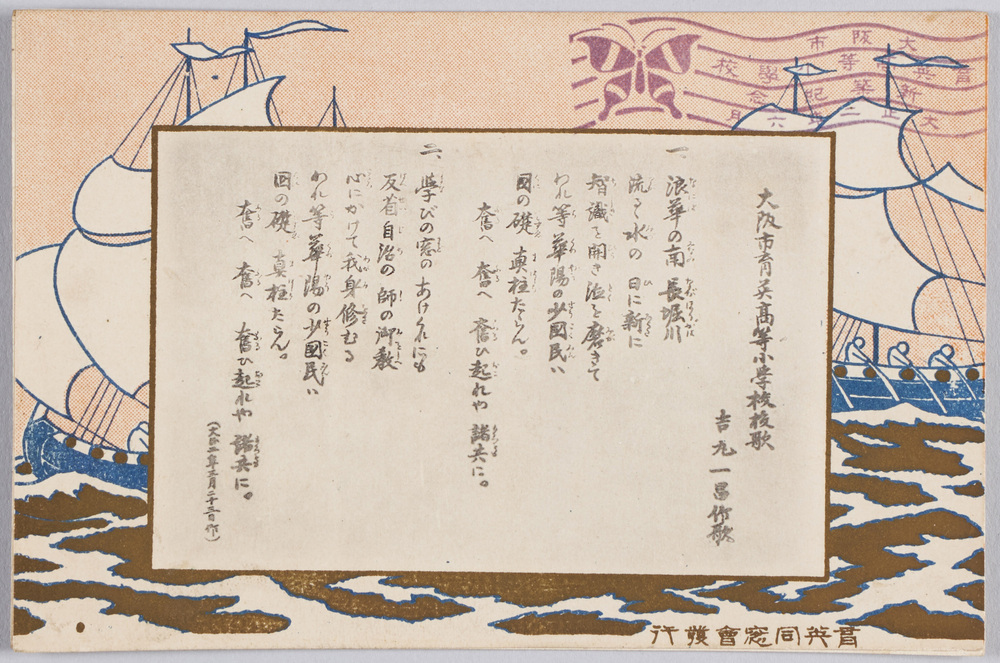 大阪市育英高等小学校校歌
吉丸一昌作歌
一、
浪華の南 長堀川
流るゝ水の 日に新に
智識を開き 徳を磨きて
われ等華陽の少國民ハ
国の礎 真柱たらん。
奮へ 奮へ 奮ひ起れや 諸共に。
二、
学びの窓のあけくれにも
反省自治の師の御教
心にかけて我身修むる
われ等華陽の少國民ハ
国の礎 真柱たらん。
奮へ 奮へ 奮ひ起れや 諸共に。
(大正二年三月二十三日作)
大阪市
育英高等小學校
新築紀念
大正二年六月
育英同窓會發行